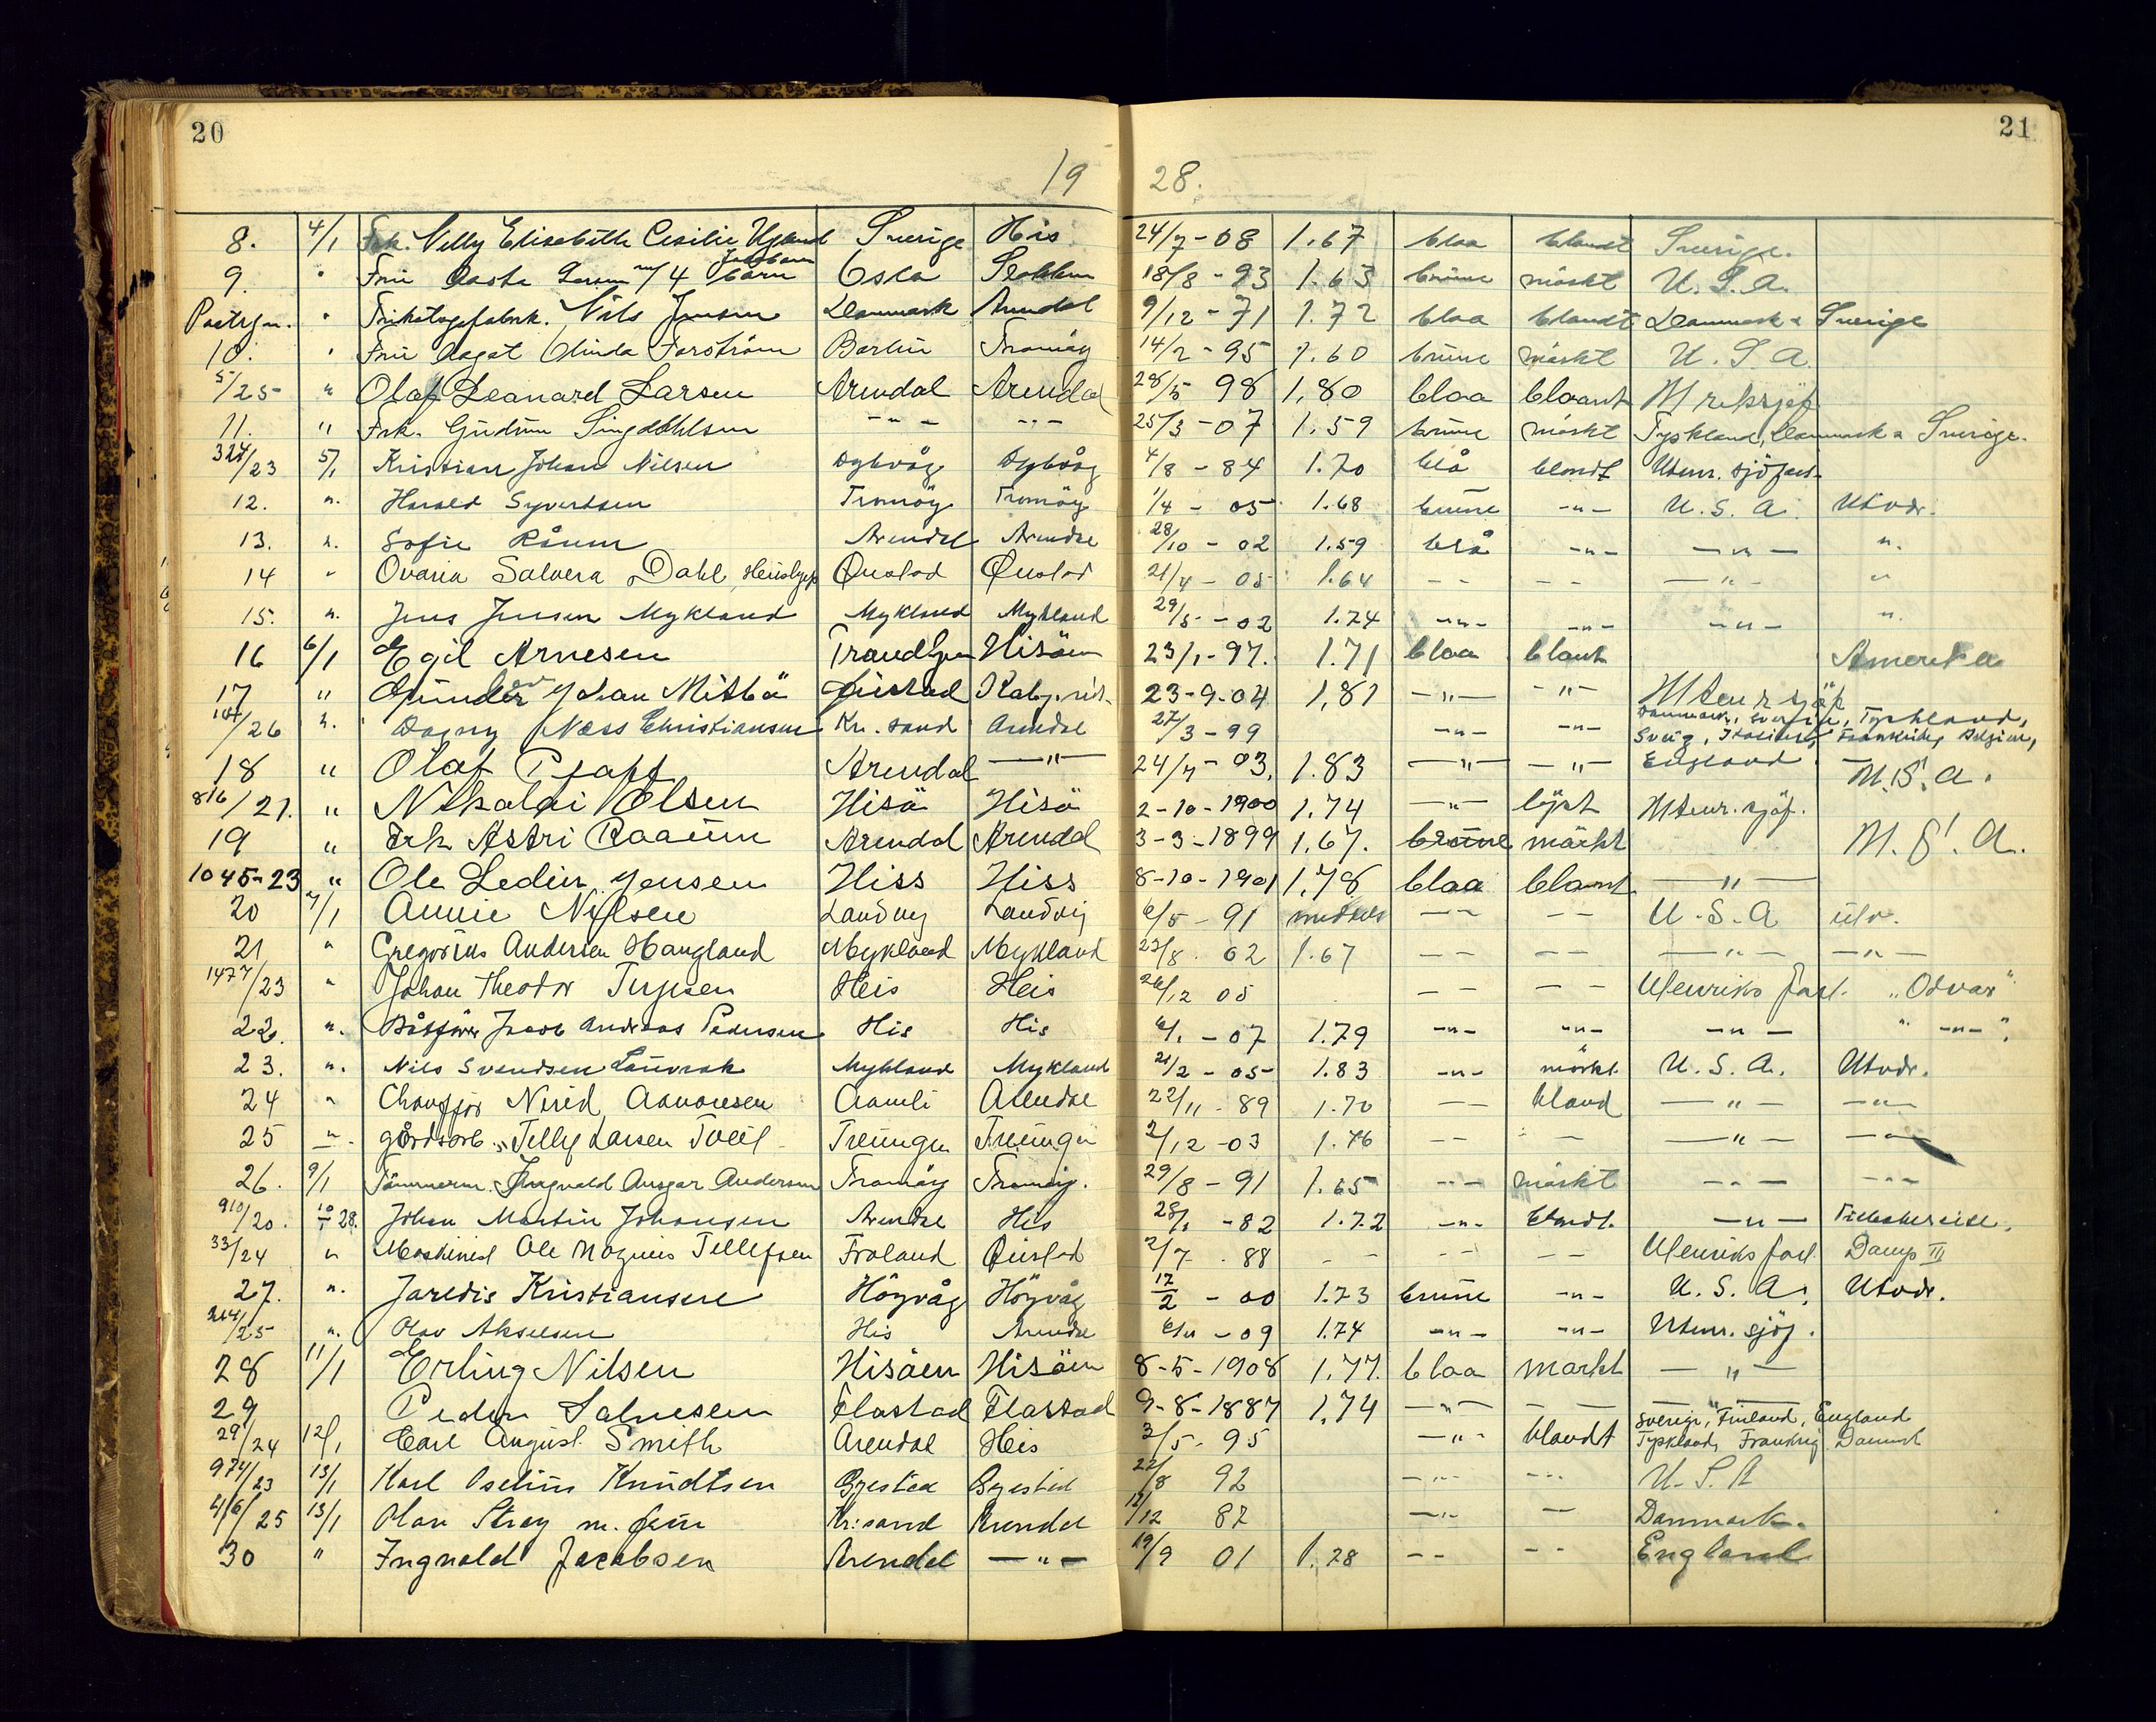 20
21
19 28.
8. 4/1 Frk. Nelly Elisabeth Cesilie Ugland Sverige His 24/7-08 1.67 blaa blandt Sverige.
9. " Fru Aasta Larsen m/4 barn Oslo 18/8-93 1.63 brune mörkt U.S.A.
" Trikotagefabrk. Nils Jensen Danmark Arendal 9/12-71 1.72 blaa blandt Danmark & Sverige
10. " Fru Aagot Olinda Forström Berlin Tromöy 14/2-95 1.60 brune mörkt U.S.A.
5/25 " Olaf Leonard Larsen Arendal Arendal 28/5 98 1,80 blaa blaant
11. " Frk. Gudrun Singdahlsen -"- -"- 25/3-07 1.59 brune mörkt Tyskland, Danmark & Sverige.
324/23 5/1 Kristian Johan Nilsen Dybvåg Dybvåg 4/8-84 1.70 blå blondt Utenr. sjöfart
12. ". Harald Syvertsen Tromöy Tromöy 1/4-05 1.68 brune -"- U.S.A. Utvdr.
13. ". Sofie Råum Arendal Arendal 28/10-02 1.59 blå -"- -"- ".
14 " Salvera Dahl, Øiestad Øiestad 21/4-05 1.64 -"- -"- -"- "
15. ". Jens Jensen Mykland Mykland Mykland 29/5-02 1.74 -"- -"- -"- ".
16 6/1 Egil Arnesen Trondhjem Hisöen 23/1-97. 1.71 blaa blant Amerika
17 " Gunder Johan Mitbö Øiestad 23-9-04 1,81 -"- -"- Utenr sjöf
107/26 ". Dagny Næss Christiansen Kr. sand Arendal 27/3-99 -"- -"- Danmark, Sverige, Tyskland, Sveits, Italien, Frankrike, Belgien, England
18 " Olaf Arendal -"- 24/7-03. 1.83 -"- -"- U.S.A.
816/21. " Nikolai Olsen Hisö Hisö 2-10-1900 1.74 -"- lyst Utenr. sjöf.
19 " Frk Astri Raaum Arendal Arendal 3-3-1899 1,67. brune mörkt U.S.A.
1045-23 " Ole Ledin Jensen Hiss Hiss 8-10-1901 1,78 blaa blant -"-
20 7/1 Annie Nilsen Landvig Landvig 6/5-91 middels -"- -"- U.S.A utv.
21 " Gregorius Andersen Haugland Mykland Mykland 23/8. 02 1.67 -"- -"- -"- -"-
1477/23 " Johan Theodor Terjesen Heis Heis 26/12 05 -"- -"- Utenriks fart. "Odvar"
22. ". Båtförer Jacob Andreas Pedersen His His 6/1-07 1.79 -"- -"- -"- "-"-".
23. ". Nils Svendsen Lauvrak Mykland Mykland 21/2-05 1.83 -"- mörkt U.S.A. Utvdr.
24 " Chauffør Aanonsen Aamli Arendal 22/11-89 1.70 -"- bland -"- -"-
25 " gårdsarb. Telly Larsen Treungen Treungen 2/12-03 1.76 -"- -"- -"- -"-
26. 9/1 Tömmerm. Ingvald Ansgar Andersen Tromöy Tromöy. 29/8-91 1.65 -"- mörkt -"- -"-
910/20. 10/1 28. Johan Martin Johansen Arendal His 28/1-82 1.72 -"- blondt. -"- Tilbakereise.
33/24 " Maskinist Ole Magnus Tellefsen Froland Øiestad 2/7. 88 - -"- -"- Utenriks fart. Damp III
27. ". Jaredis Kristiansen Höyvåg Höyvåg 17/2-00 1.73 brune -"- U.S.A. Utvdr.
214/25 ". Olav Akselsen His Arendal 6/11-09 1.74 -"- -"- Utenr. sjöf.
28 11/1 Erling Nilsen Hisöen Hisöen 8-5-1908 1,77. blaa mörkt -"-
29 Peder Salvesen Flostad Flostad 9-8-1887 1,74 -"- -"- -"-
29/24 12/1 Carl August Smith Arendal Heis 3/5-95 -"- blandt Sverige, Finland, England Tyskland, Frankrig Danmk
974/23 13/1 Karl Oselius Knudtsen Gjestad Gjestad 22/8 92 -"- -"- U.S.A
416/25 13/1 Olav Stray m. frue Kr:sand Arendal 12/12 87 -"- -"- Danmark.
30 " Ingvald Jacobsen Arendal -"- 19/9 01 1.78 -"- -"- England